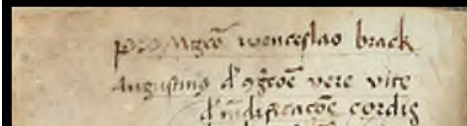 pro Mgrō wenceslao brack
Augustinus d' 9gc̄oē vere vite
d' mūdificacōe cordis